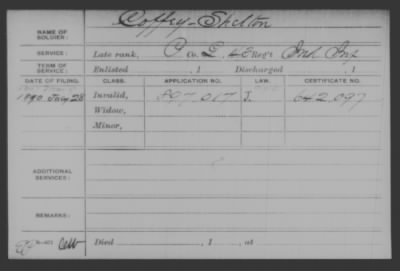 Coffey - Shelton
NAME OF SOLDIER:
SERVICE: Late rank, P Co. E, Reg't Ind Inf
TERM OF SERVICE: Enlisted , 1 Discharged , 1
DATE OF FILING. CLASS. APPLICATION NO. LAW. CERTIFICATE NO.
1890 July 28 Invalid, 897,017 J. 642,097
Widow,
Minor,
ADDITIONAL SERVICES:
REMARKS:
Died , 1 , at